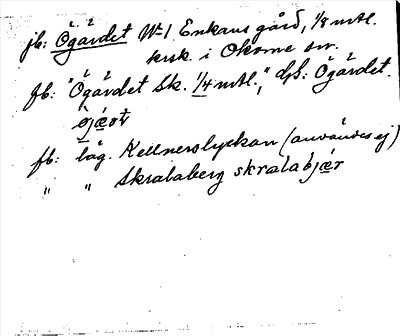 jb: Ögärdet No 1 Enkans gård, 1/8 mtl.
krsk. i Okome sn.
fb: "Ögärdet Sk. 1/4 mtl.", dfs: Ögärdet.
fb: låg. Kellnerslyckan (användes ej)
" " Skralaberg skralabjær